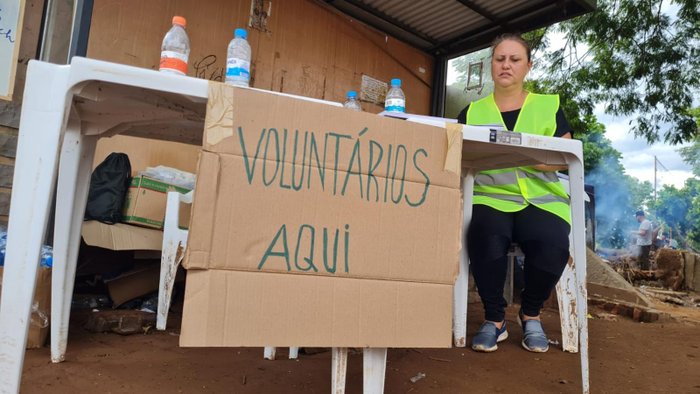 VOLUNTÁRIOS
AQUI